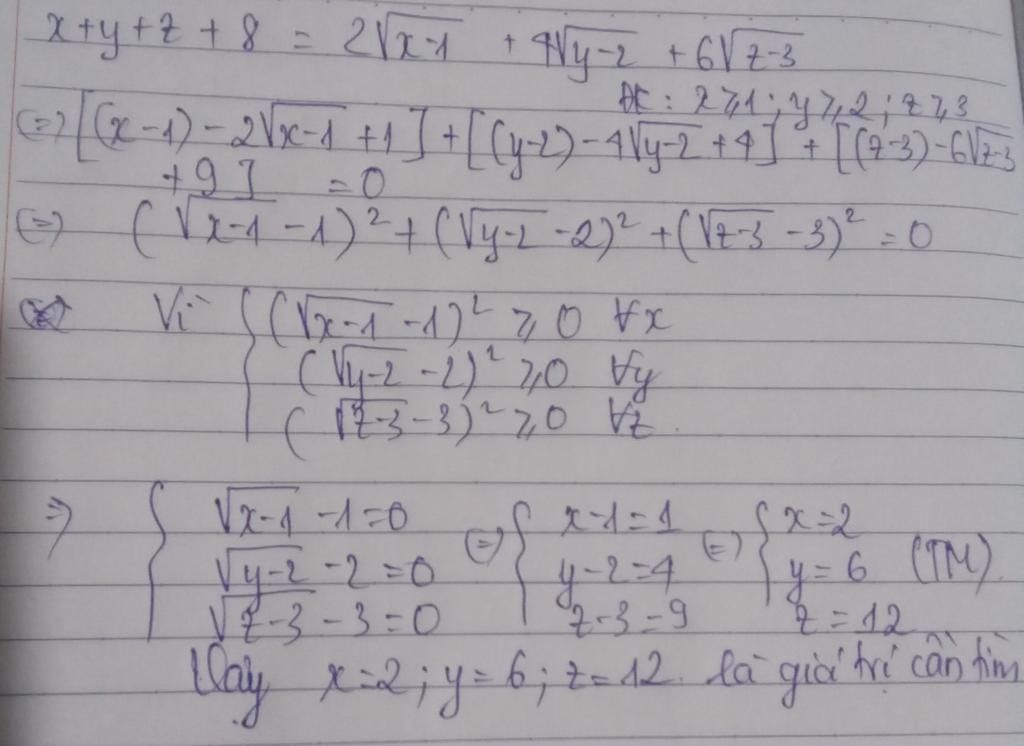 x+y+z+8 = 2√(x-1) + 4√(y-2) + 6√(z-3)
ĐK: x≥1; y≥2; z≥3
(=) [(x-1)-2√(x-1)+1]+[(y-2)-4√(y-2)+4] + [(z-3)-6√(z-3)
+9] =0
(=) (√(x-1)-1)²+(√(y-2)-2)²+(√(z-3)-3)²=0
Vì { (√(x-1)-1)²≥0 ∀x
(√(y-2)-2)²≥0 ∀y
(√(z-3)-3)²≥0 ∀z.
=> { √(x-1)-1=0 (=) { x-1=1 (=) { x=2
√(y-2)-2=0 y-2=4 y=6 (TM)
√(z-3)-3=0 z-3=9 z=12
Vậy x=2; y=6; z=12. là giá trị cần tìm